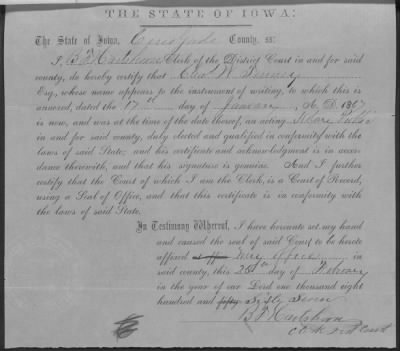 THE STATE OF IOWA:
The State of Iowa, Cerro Gordo County, ss:
I, B F Hartshorn Clerk of the District Court in and for said
county, do hereby certify that Chas W
Esq., whose name appears to the instrument of writing, to which this is
annexed, dated the 17th day of January A. D. 1867
is now, and was at the time of the date thereof, an acting Notary Public
in and for said county, duly elected and qualified in conformity with the
laws of said State; and his certificate and acknowledgment is in accor-
dance therewith, and that his signature is genuine. And I further
certify that the Court of which I am the Clerk, is a Court of Record,
using a Seal of Office, and that this certificate is in conformity with
the laws of said State.
In Testimony Whereof, I have hereunto set my hand
and caused the seal of said Court to be hereto
affixed at office my office in
said county, this 28th day of February
in the year of our Lord one thousand eight
hundred and fifty Sixty Seven
B F Hartshorn
Clerk Dist Court